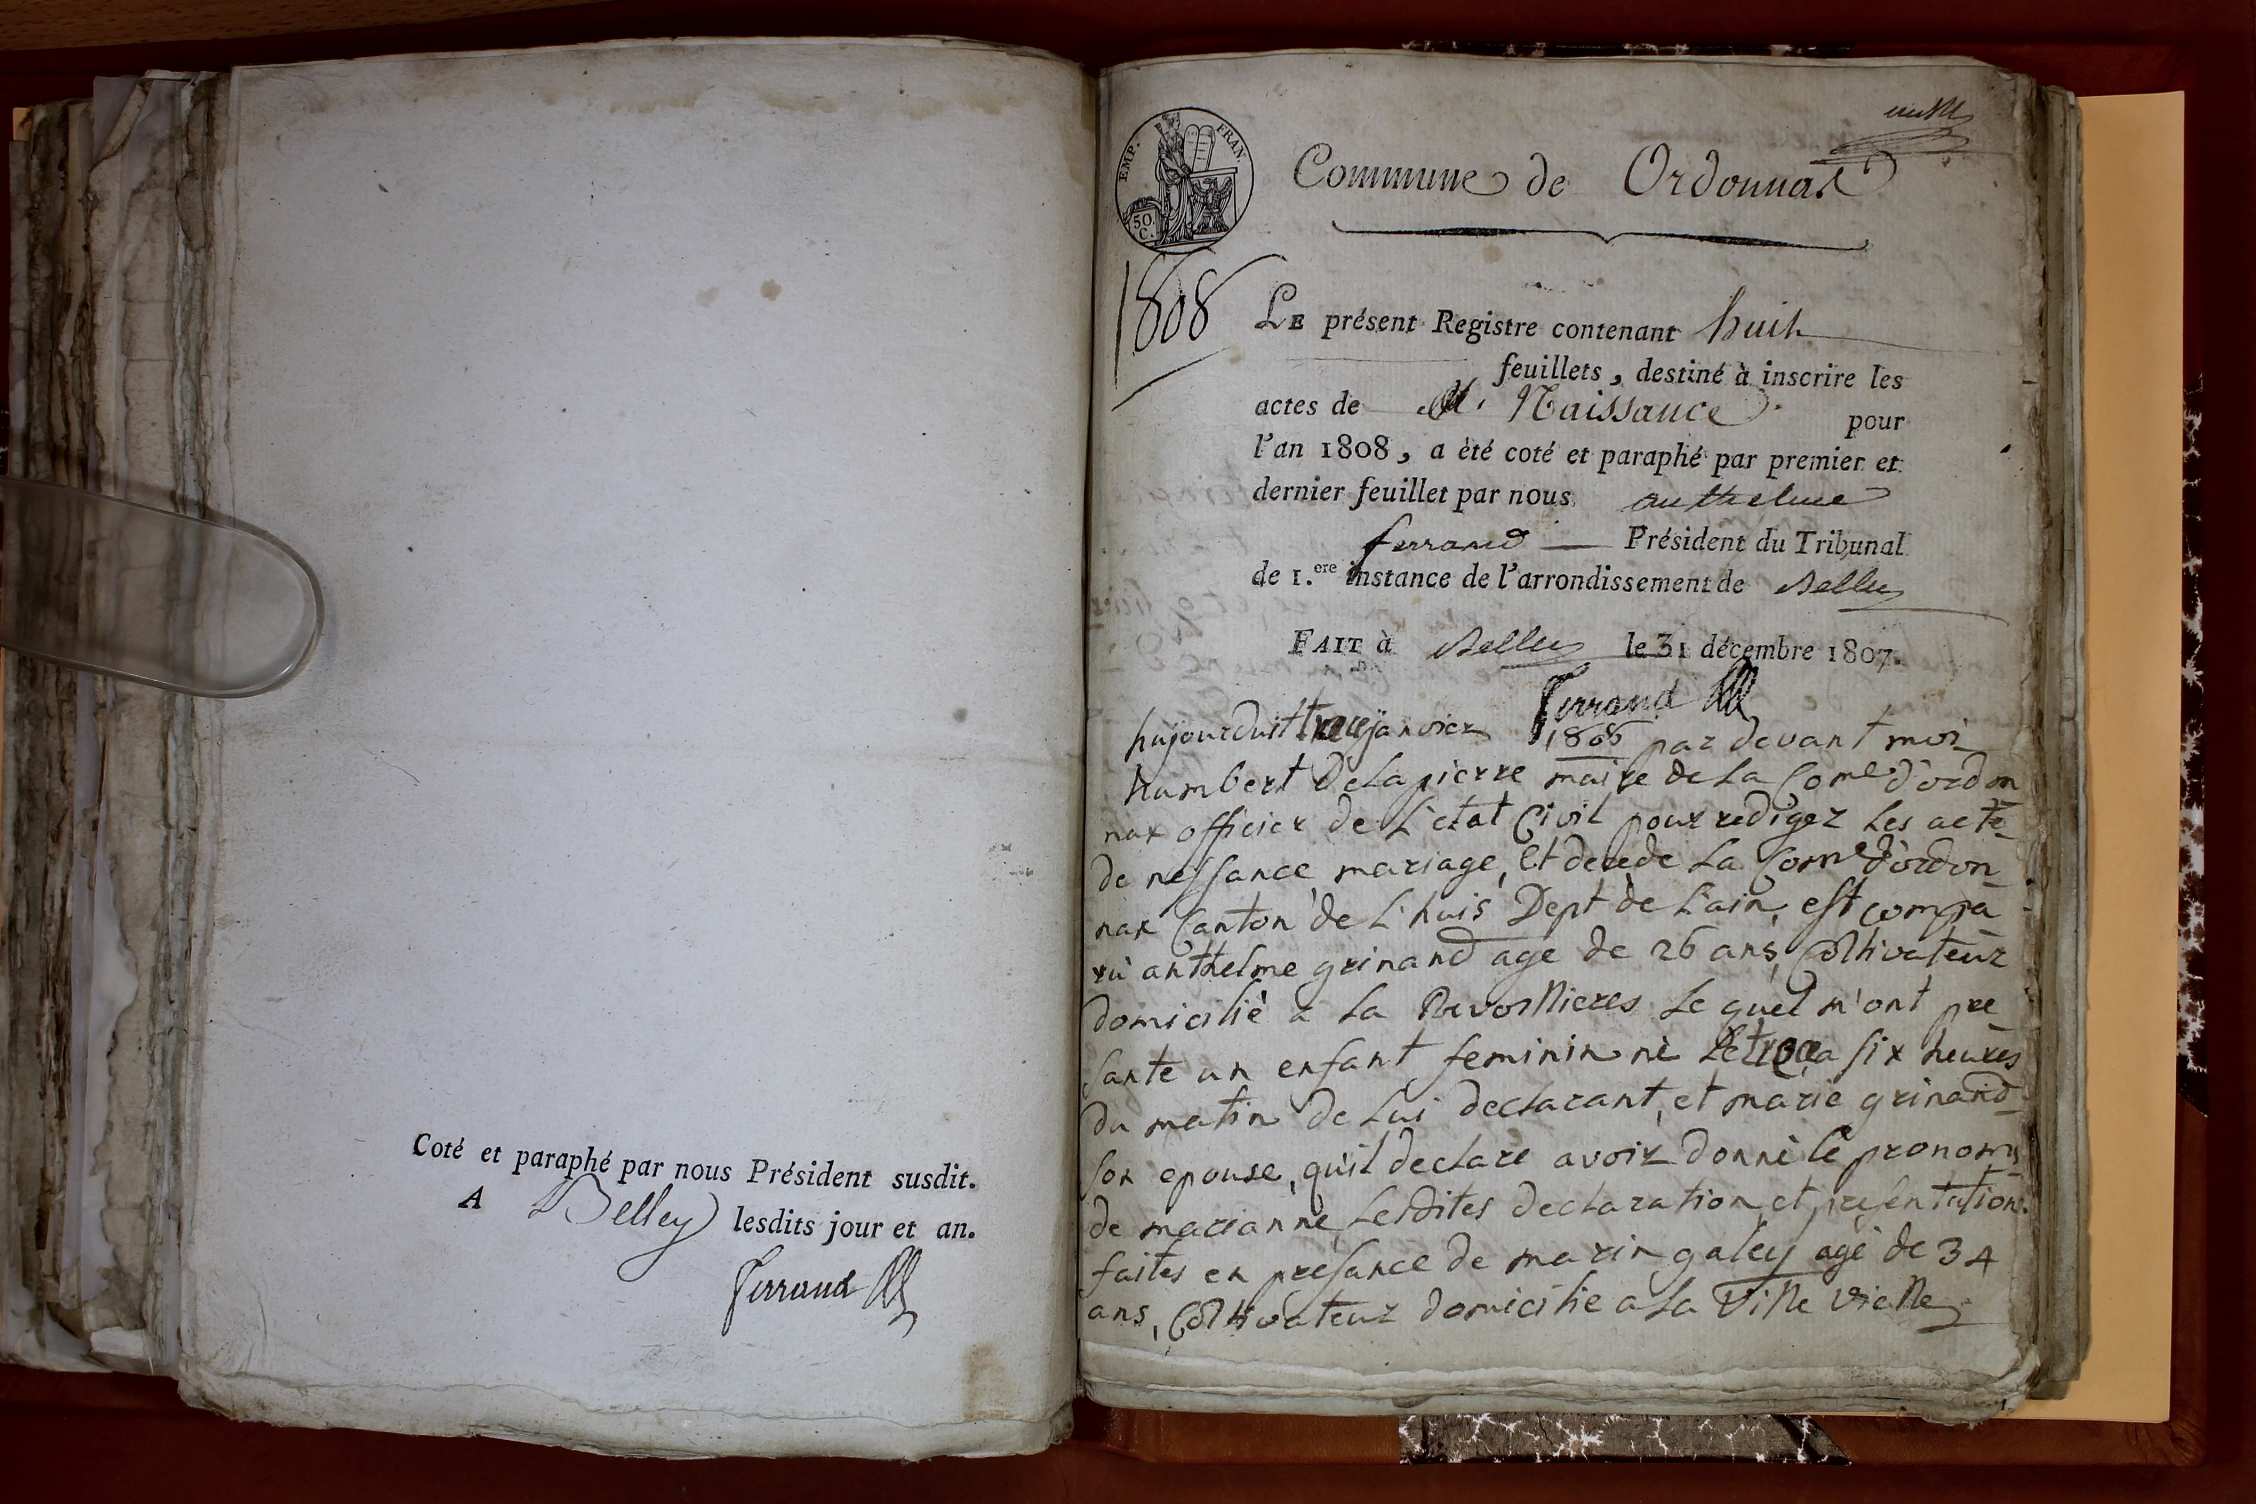 Coté et paraphé par nous Président susdit.
A Belley lesdits jour et an.
Ferrand
EMP. FRAN.
50 C.
Commune de Ordonnax
1808
LE présent Registre contenant huit
feuillets, destiné à inscrire les
actes de Naissance pour
l'an 1808, a été coté et paraphé par premier et
dernier feuillet par nous anthelme
ferrand Président du Tribunal
de 1.ere instance de l'arrondissement de Belley
FAIT à Belley le 31 décembre 1807.
Ferrand
hujourduit janvier 1808 par devant moi
humbert Delapierre maire de La Come d'ordon
nax officier de L'etat Civil pour rediger Les acte
de nessance mariage, Et decede La Come d'ordon
nax Canton de L'huis Dept de L'ain, est compa
ru anthelme grinand age de 26 ans, Coltivateur
domicilié a La Le quel m'ont pre
sante un enfant feminin né Le a six heures
du matin de Lui declarant, et marie grinand
son epouse, qu'il declare avoir donné le pronoms
de marianne, Lesdites declaration et presentations
faites en presance de marin galey agé de 34
ans, Coltivateur domicilie a La Ville vielle